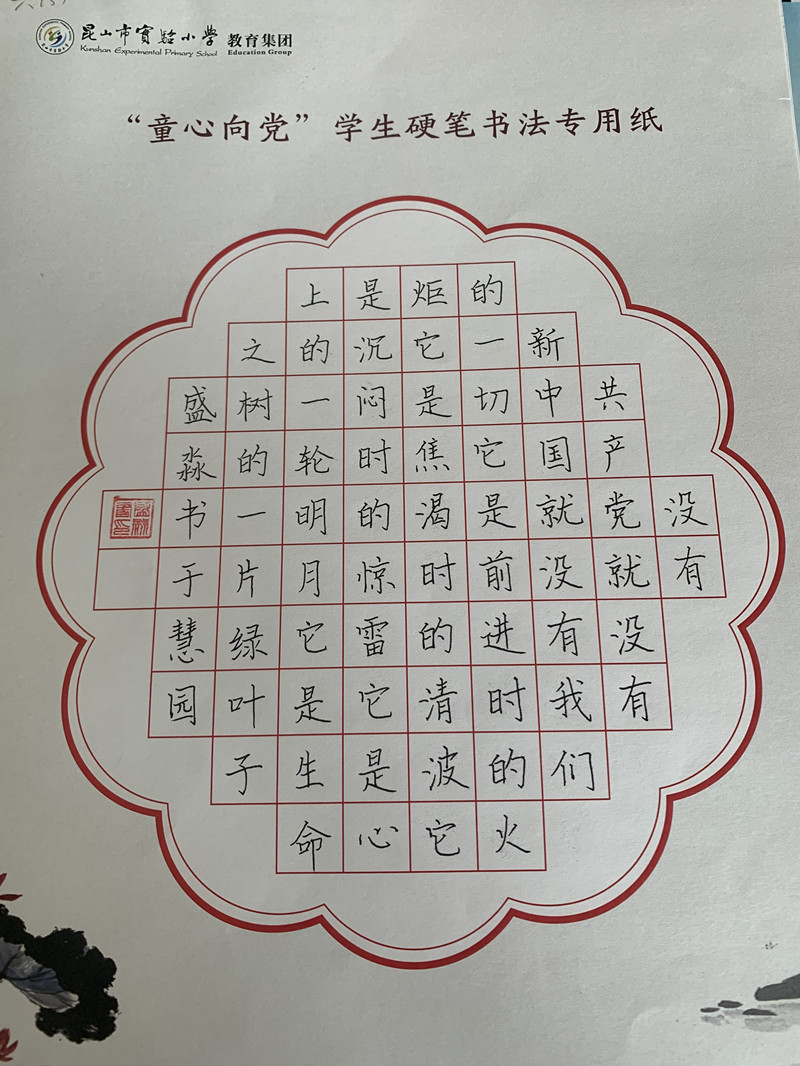 昆山市实验小学 教育集团
Kunshan Experimental Primary School Education Group
“童心向党”学生硬笔书法专用纸
没有
共产党就没有
新中国就没有我们
的一切它是前进时的火
炬它是焦渴时的清波它
是沉闷时的惊雷它是心
上的一轮明月它是生命
之树的一片绿叶子
盛淼书于慧园